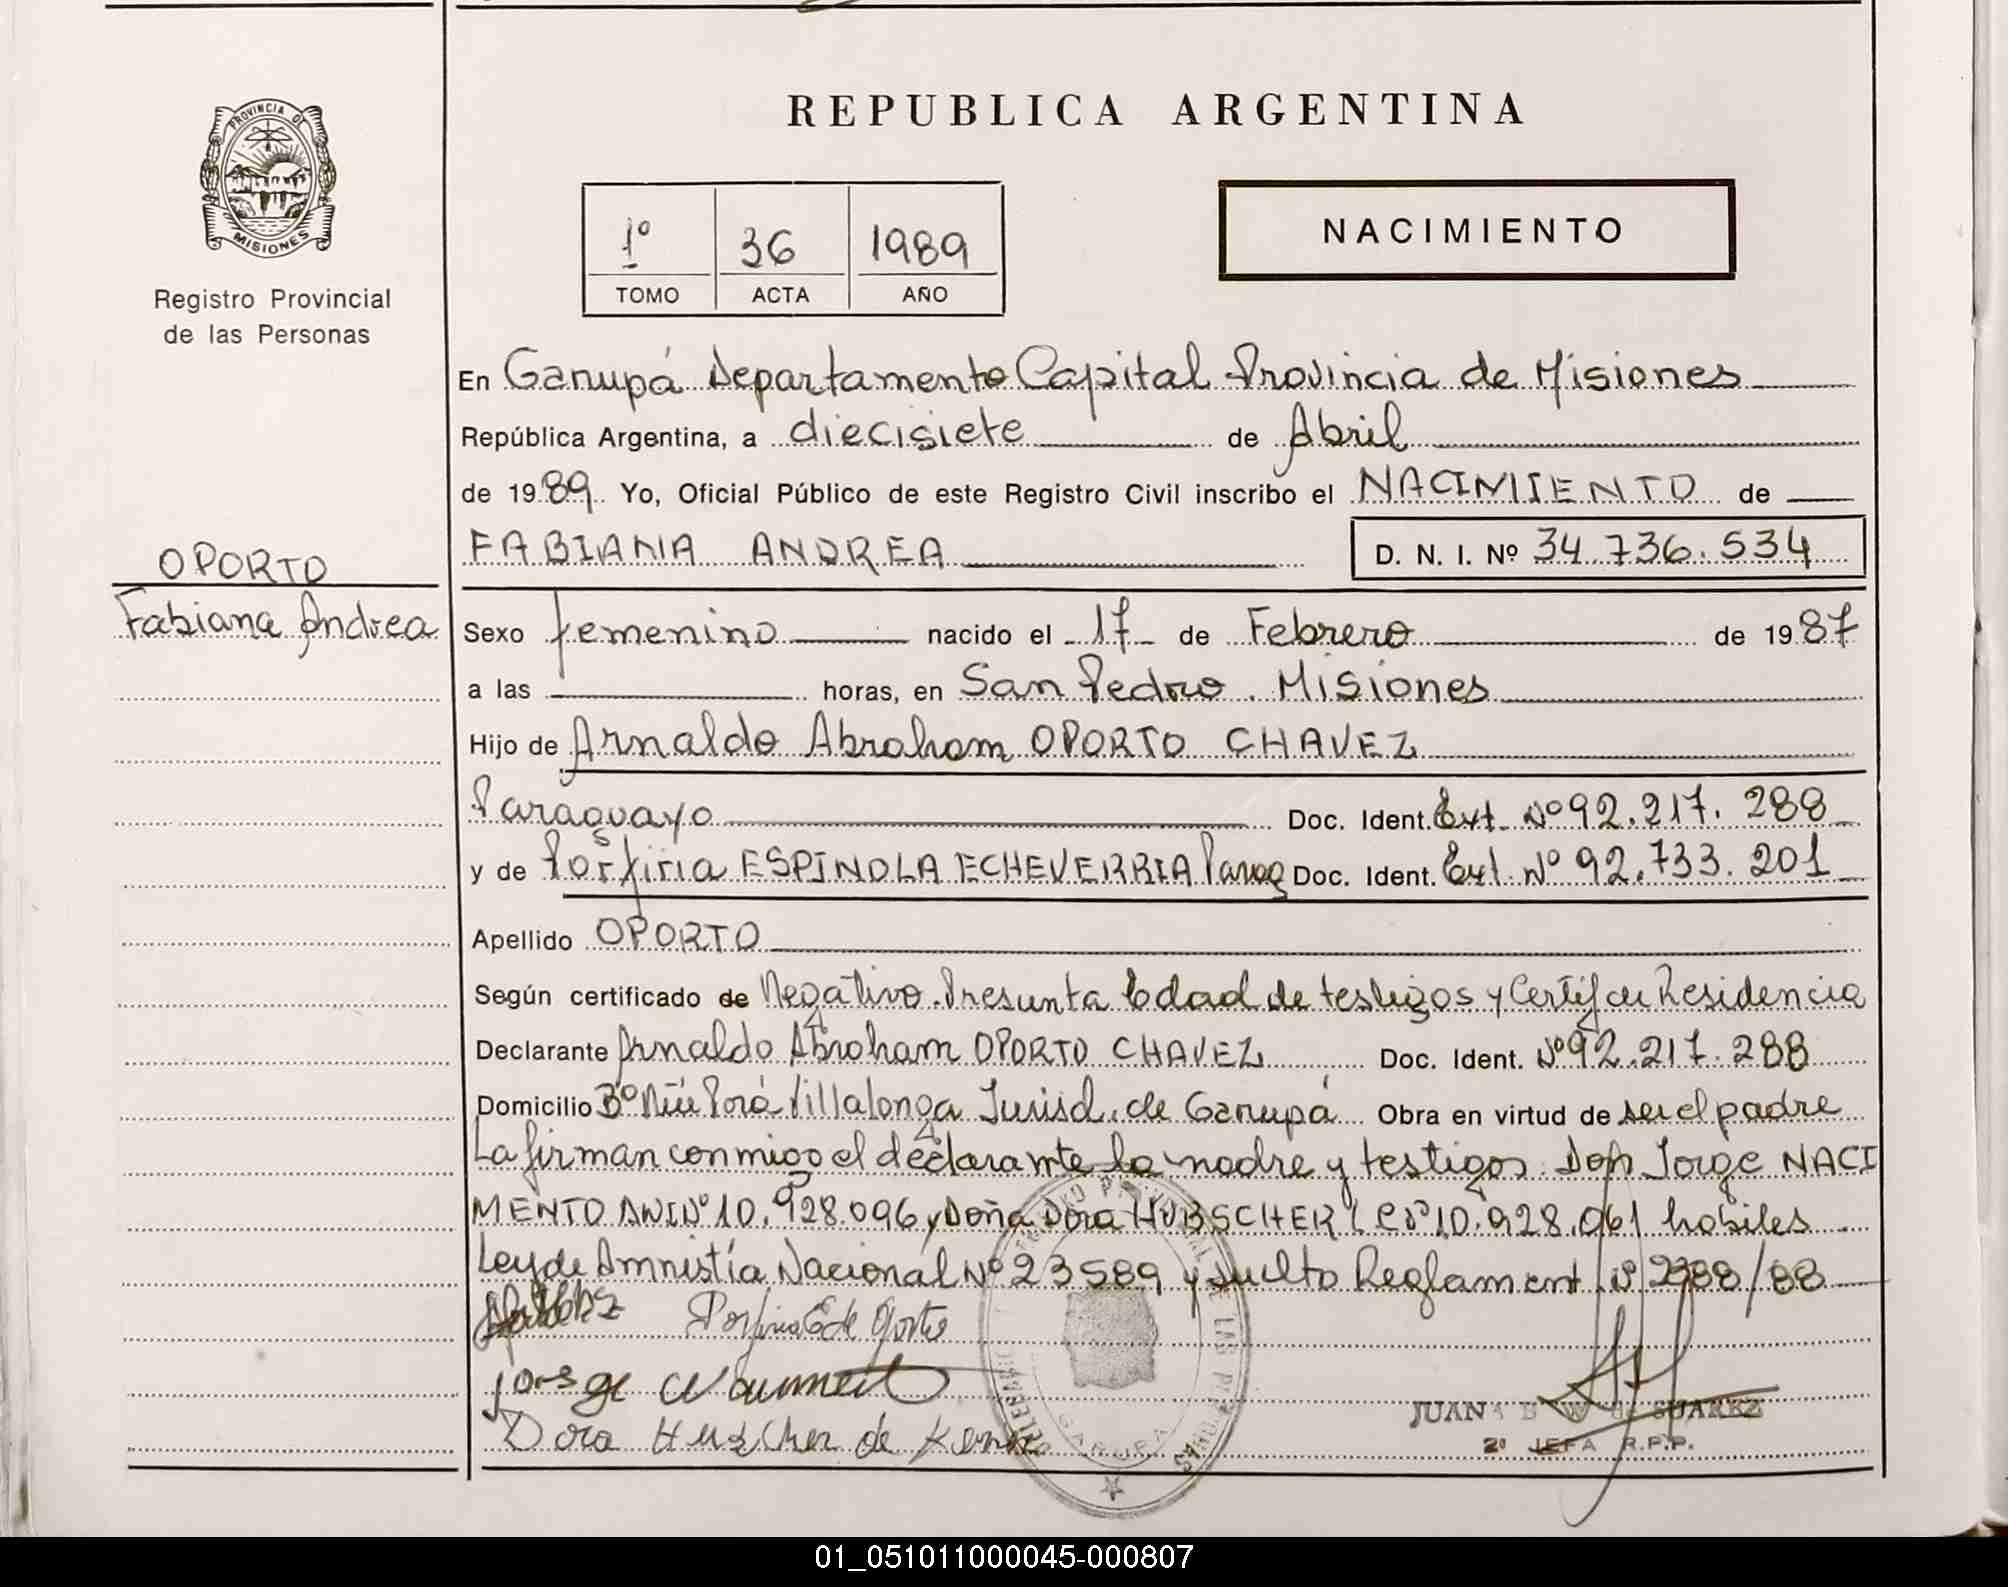 PROVINCIA DE
MISIONES
Registro Provincial
de las Personas
REPUBLICA ARGENTINA
1º 36 1989
TOMO ACTA AÑO
NACIMIENTO
En Garupá Departamento Capital Provincia de Misiones
República Argentina, a diecisiete de Abril
de 1989 Yo, Oficial Público de este Registro Civil inscribo el NACIMIENTO de
FABIANA ANDREA D. N. I. Nº 34.736.534
OPORTO
Fabiana Andrea
Sexo femenino nacido el 17 de Febrero de 1987
a las horas, en San Pedro. Misiones
Hijo de Arnaldo Abraham OPORTO CHAVEZ
Paraguayo Doc. Ident. Ext. Nº 92.217.288
y de Porfiria ESPINOLA ECHEVERRIA Parag Doc. Ident. Ext. Nº 92.733.201
Apellido OPORTO
Según certificado de Negativo. Presunta Edad de testigos y Certif de Residencia
Declarante Arnaldo Abraham OPORTO CHAVEZ Doc. Ident. Nº 92.217.288
Domicilio Bº Ñu Porá Villalonga Jurisd. de Garupá Obra en virtud de ser el padre
La firman conmigo el declarante la madre y testigos Don Jorge NACI
MENTO DNI Nº 10.928.096 y Doña Dora HUBSCHER LC Nº 10.928.061 habiles
Ley de Amnistía Nacional Nº 23589 y Reglament Nº 2388/88
Porfiria E de Oporto
Jorge
Dora Hubscher de
REGISTRO PROVINCIAL DE LAS PERSONAS
GARUPA
MISIONES
JUANA B W de SUAREZ
2º JEFA R.P.P.
01_051011000045-000807